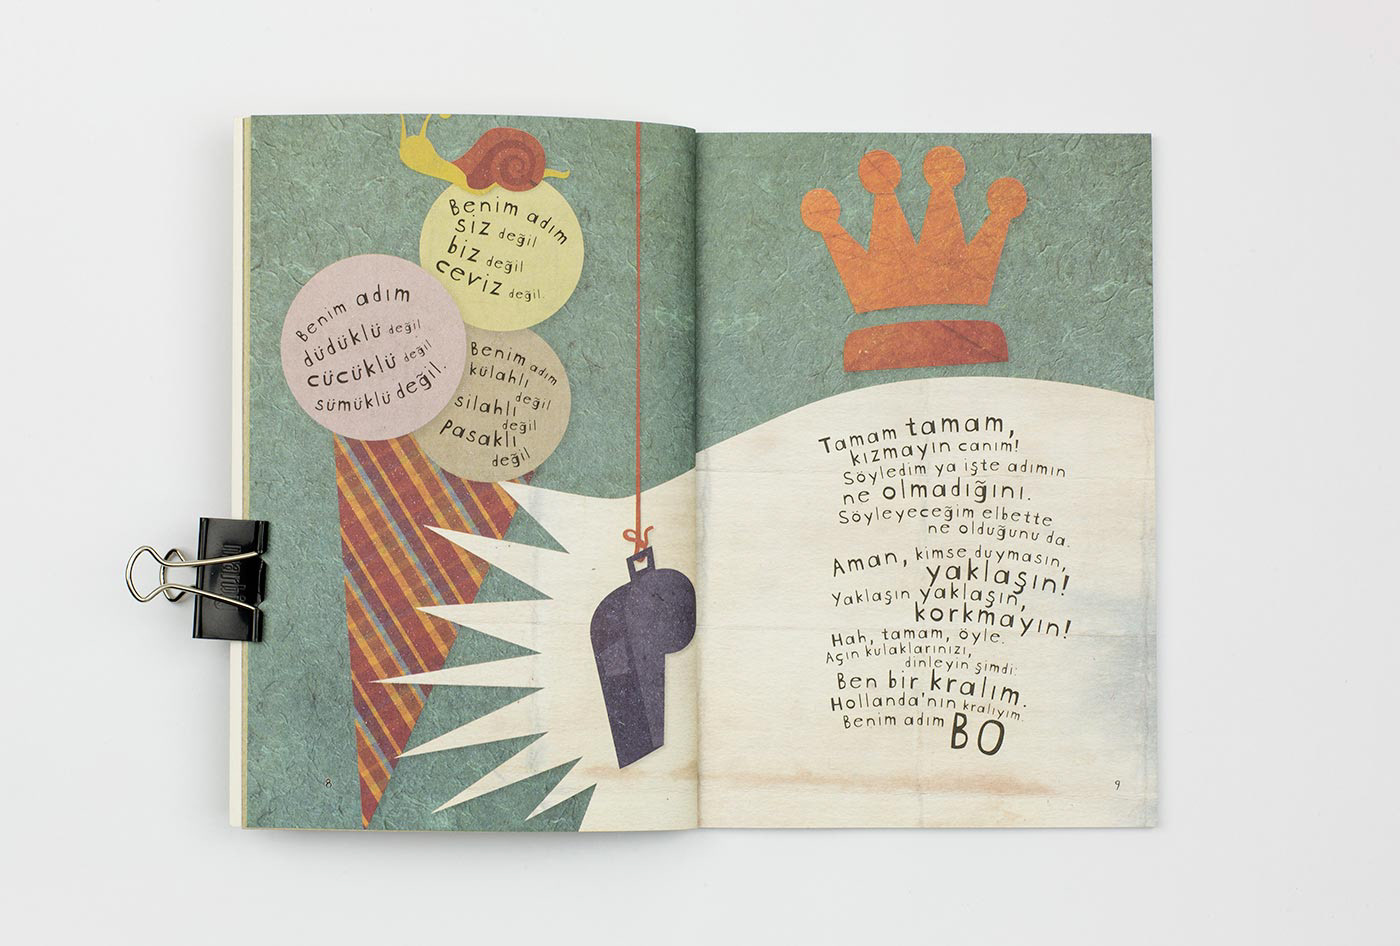 Benim adım
siz değil
biz değil
ceviz değil.
Benim adım
düdüklü değil
cücüklü değil
sümüklü değil.
Benim adım
külahlı
değil
silahlı
değil
pasaklı
değil
8
Tamam tamam,
kızmayın canım!
Söyledim ya işte adımın
ne olmadığını.
Söyleyeceğim elbette
ne olduğunu da.
Aman, kimse duymasın,
yaklaşın!
Yaklaşın yaklaşın,
korkmayın!
Hah, tamam, öyle.
Açın kulaklarınızı,
dinleyin şimdi:
Ben bir kralım.
Hollanda'nın kralıyım.
Benim adım BO
9